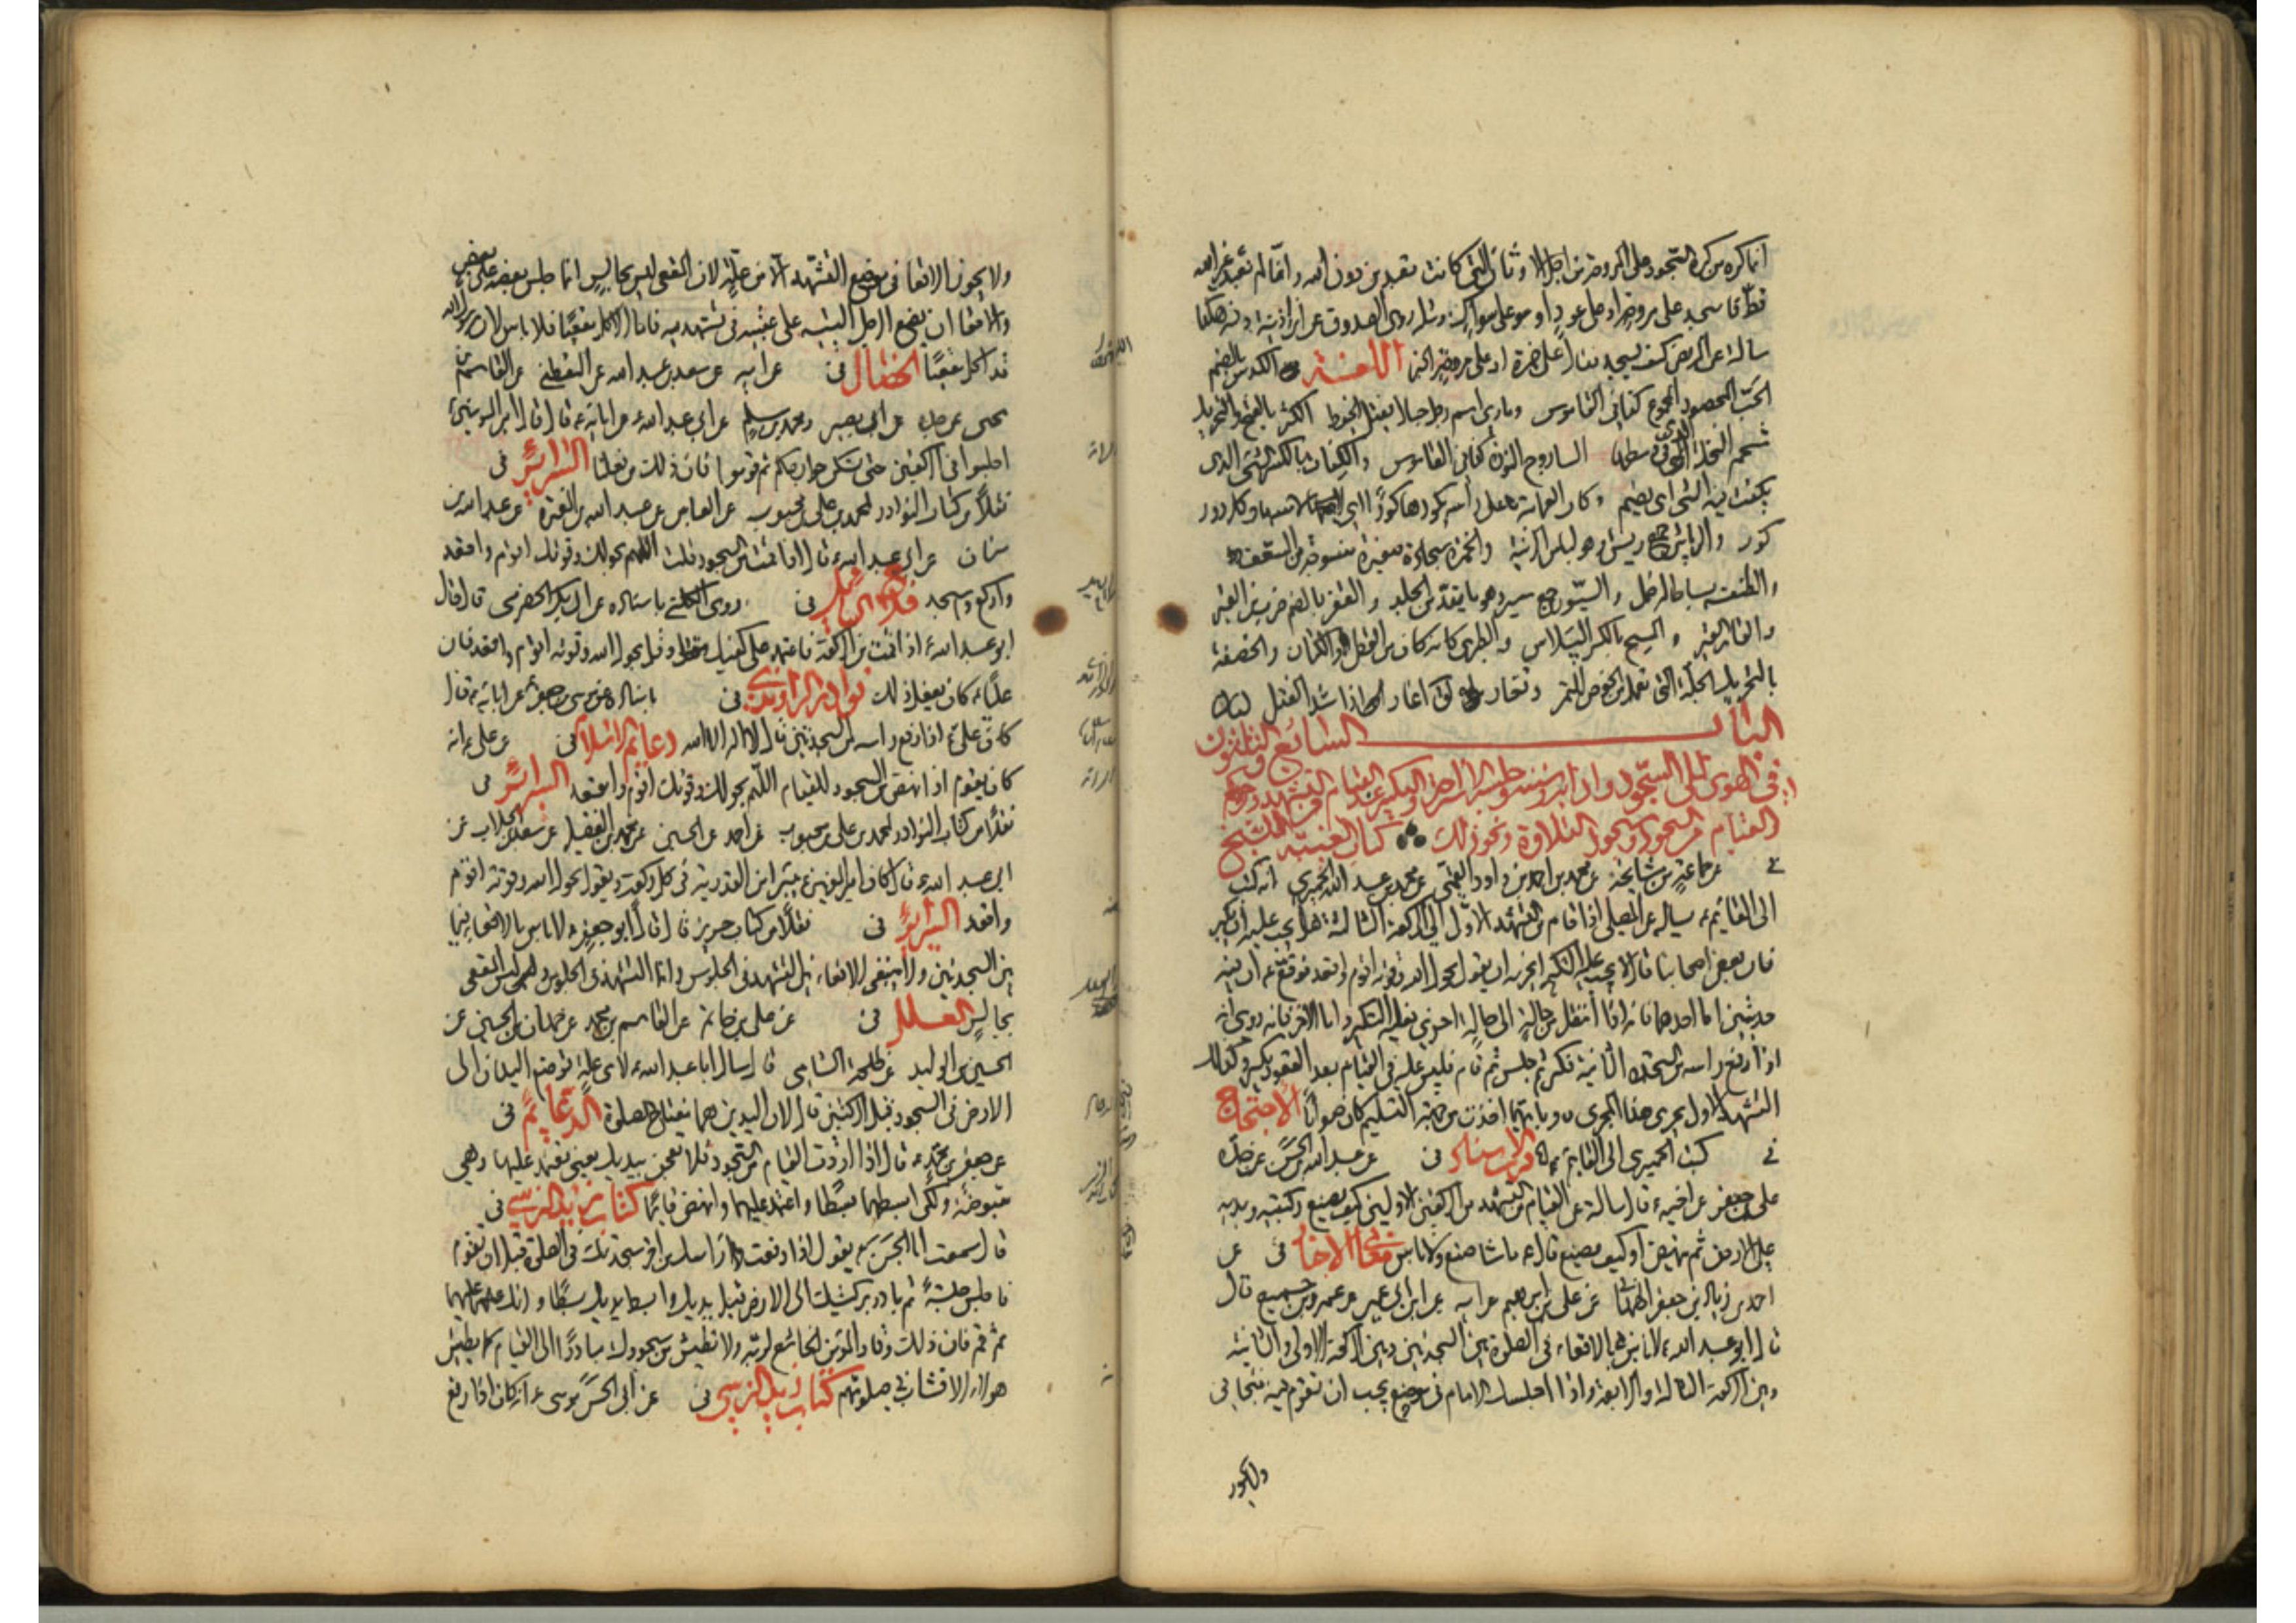 انما كره من كره السجود على المروحة من اجل الاوثان التي كانت تعبد من دون الله وانا لم نعبد غير الله
قط فاسجد على مروحة او على عود او سواك ومثله روى الصدوق عن زرارة
سالته عن المريض كيف يسجد فقال على خمرة او على مروحة الخبر اللغة الكدس بالضم
الحب المحصود المجموع كذا في القاموس اسم رجل الكثر بالفتح وبالتحريك
شحم النخل الذي في وسطها الساروج النورة كذا في القاموس والكفات بالكسر الشي الذي
يكفت فيه الشي اي يضم وكار العمامة على راسه يكورها كورا وكل دور
كور والرياش جمع ريش وهو لباس الزينة والخمرة سجادة صغيرة منسوجة من السعف
والطنفسة بساط له خمل والسيور جمع سير وهو ما يقد من الجلد والقفر بالضم ضرب من القير
والقار القير والمسح بالكسر البلاس والطبري كانه كان من القطن او الكتان والخصفة
بالتحريك الجلة التي تعمل من الخوص للتمر اغار اذا شد الفتل
الباب السابع والثلثون
في الهوى الى السجود وادابه وسننه وجلسة الاستراحة والتكبير عند القيام من التشهد وحكم
القيام من السجود وسجود التلاوة ونحو ذلك كتاب الغيبة للشيخ
عن جماعة من مشايخه عن محمد بن احمد بن داود القمي عن محمد بن عبد الله الحميري انه كتب
الى القائم ع يساله عن المصلي اذا قام من التشهد الاول الى الركعة الثالثة هل يجب عليه ان يكبر
فان بعض اصحابنا قال لا يجب عليه التكبير ويجزيه ان يقول بحول الله وقوته اقوم واقعد فوقع ع ان فيه
حديثين اما احدهما فانه اذا انتقل من حالة الى حالة اخرى فعليه التكبير واما الاخر فانه روي انه
اذا رفع راسه من السجدة الثانية فكبر ثم جلس ثم قام فليس عليه في القيام بعد القعود تكبير وكذلك
التشهد الاول يجري هذا المجرى وبايهما اخذت من جهة التسليم كان صوابا الاحتجاج
في كتب الحميري الى القائم ع مثله قرب الاسناد في عن عبد الله بن الحسن عن جده
علي بن جعفر عن اخيه ع قال سالته عن القيام من التشهد من الركعتين الاوليين كيف يضع ركبتيه ويديه
على الارض ثم ينهض او كيف يصنع قال ع ما شاء صنع ولا باس معاني الاخبار في عن
احمد بن زياد بن جعفر الهمداني عن علي بن ابرهيم عن ابيه عن ابن ابي عمير عن عمرو بن جميع قال
قال ابو عبد الله ع لا باس بالاقعاء في الصلوة بين السجدتين وبين الركعة الاولى والثانية
وبين الركعة الثالثة والرابعة واذا اجلسك الامام في موضع يجب ان تقوم فيه فتجافى
ولا يجوز
ولا يجوز الاقعا في موضع التشهد الا من علة لان المقعي ليس بجالس انما جلس بعضه على بعض
والاقعا ان يضع الرجل اليتيه على عقبيه في تشهديه فاما الاكل مقعيا فلا باس لان رسول الله
قد اكل مقعيا الخصال في عن ابيه عن سعد بن عبد الله عن اليقطيني عن القاسم بن
يحيى عن جده عن ابي بصير ومحمد بن مسلم عن ابي عبد الله عن ابائه ع قال قال امير المومنين ع
اجلسوا في الركعتين حتى تسكن جوارحكم ثم قوموا فان ذلك من فعلنا السرائر في
نقلا من كتاب النوادر لمحمد بن علي بن محبوب عن العباس عن عبد الله بن المغيرة عن عبد الله بن
سنان عن ابي عبد الله ع قال اذا قمت من السجود قلت اللهم بحولك وقوتك اقوم واقعد
واركع واسجد فلاح السائل في روى الكليني باسناده عن ابي بكر الحضرمي قال قال
ابو عبد الله ع اذا قمت من الركعة فاعتمد على كفيك وقل بحول الله وقوته اقوم واقعد فان
عليا ع كان يفعل ذلك نوادر الراوندي في باسناده عن موسى بن جعفر عن ابائه ع قال
كان علي ع اذا رفع راسه من السجدتين قال لا اله الا الله دعائم الاسلام في عن علي ع انه
كان يقوم اذا نهض من السجود للقيام اللهم بحولك وقوتك اقوم واقعد السرائر في
نقلا من كتاب النوادر لمحمد بن علي بن محبوب عن احمد عن الحسين عن محمد بن الفضيل عن سعد الجلاب عن
ابي عبد الله ع قال كان امير المؤمنين ع يبرا من القدرية في كل ركعة ويقول بحول الله وقوته اقوم
واقعد السرائر في نقلا من كتاب حريز قال قال ابو جعفر ع لا باس بالاقعا فيما
بين السجدتين ولا ينبغي الاقعاء بين التشهد في الجلوس وانما التشهد في الجلوس وليس المقعي
بجالس العلل في عن علي بن حاتم عن القاسم بن محمد عن حمدان بن الحسين عن
الحسين بن الوليد عن طلحة الشامي قال سال ابا عبد الله ع لاي علة توضع اليدان الى
الارض في السجود قبل الركبتين قال لان اليدين هما مفتاح الصلوة الدعائم في
عن جعفر بن محمد ع قال اذا اردت القيام من السجود فلا تعجن بيديك يعني تعتمد عليهما وهي
مقبوضة ولكن ابسطهما بسطا واعتمد عليهما وانهض قائما كتاب زيد النرسي في
قال سمعت ابا الحسن ع يقول اذا رفعت راسك من اخر سجدتك في الصلوة قبل ان تقوم
فاجلس جلسة ثم بادر بركبتيك الى الارض قبل يديك وابسط يديك بسطا واتك عليهما
ثم قم فان ذلك وقار المؤمن الخاشع لربه ولا تطيش من سجودك مبادرا الى القيام كما يطيش
هولاء الاقشاب في صلوتهم كتاب زيد النرسي في عن ابي الحسن موسى ع انه كان اذا رفع